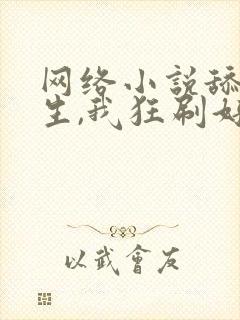 网络小説舔
生,我狂刷好
以武會友